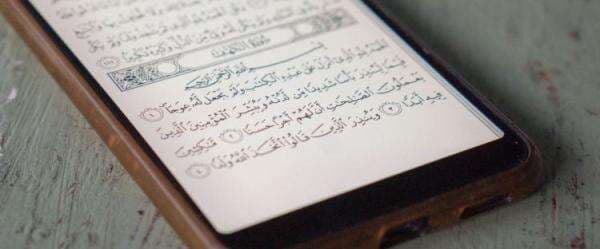 سُورَةُ الكَهْفِ
بِسْمِ ٱللَّهِ ٱلرَّحْمَٰنِ ٱلرَّحِيمِ
ٱلْحَمْدُ لِلَّهِ ٱلَّذِىٓ أَنزَلَ عَلَىٰ عَبْدِهِ ٱلْكِتَٰبَ وَلَمْ يَجْعَل لَّهُۥ عِوَجَاۜ ١
قَيِّمًا لِّيُنذِرَ بَأْسًا شَدِيدًا مِّن لَّدُنْهُ وَيُبَشِّرَ ٱلْمُؤْمِنِينَ ٱلَّذِينَ
يَعْمَلُونَ ٱلصَّٰلِحَٰتِ أَنَّ لَهُمْ أَجْرًا حَسَنًا ٢ مَّٰكِثِينَ
فِيهِ أَبَدًا ٣ وَيُنذِرَ ٱلَّذِينَ قَالُوا۟ ٱتَّخَذَ ٱللَّهُ وَلَدًا ٤